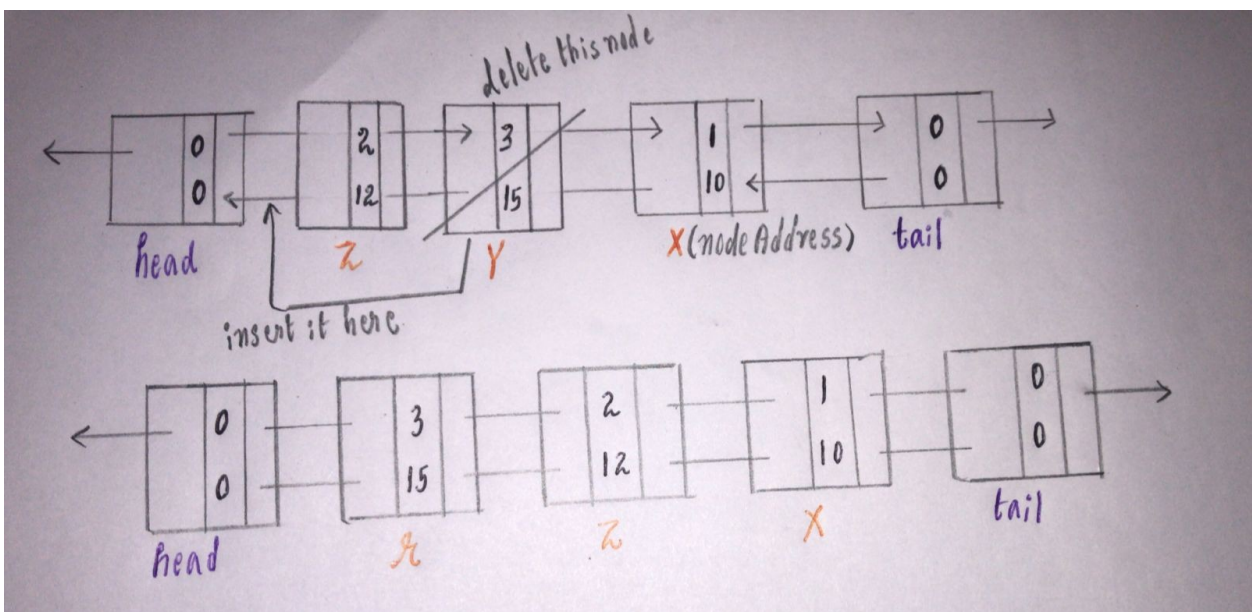 delete this node
0 2 3 1 0
0 12 15 10 0
head z Y X (node Address) tail
insert it here
0 3 2 1 0
0 15 12 10 0
head r z X tail